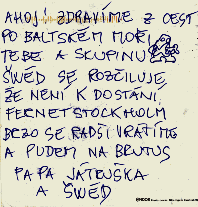 AHOJ ZDRAVÍME Z CEST
PO BALTSKÉM MOŘI
TEBE A SKUPINU
ŠVÉD SE ROZČILUJE,
ŽE NENÍ K DOSTÁNÍ
FERNET STOCKHOLM
BRZO SE RADŠI VRÁTÍME
A PUDEM NA BRUTUS
PA PA JÁTEUŠKA
A ŠVÉD